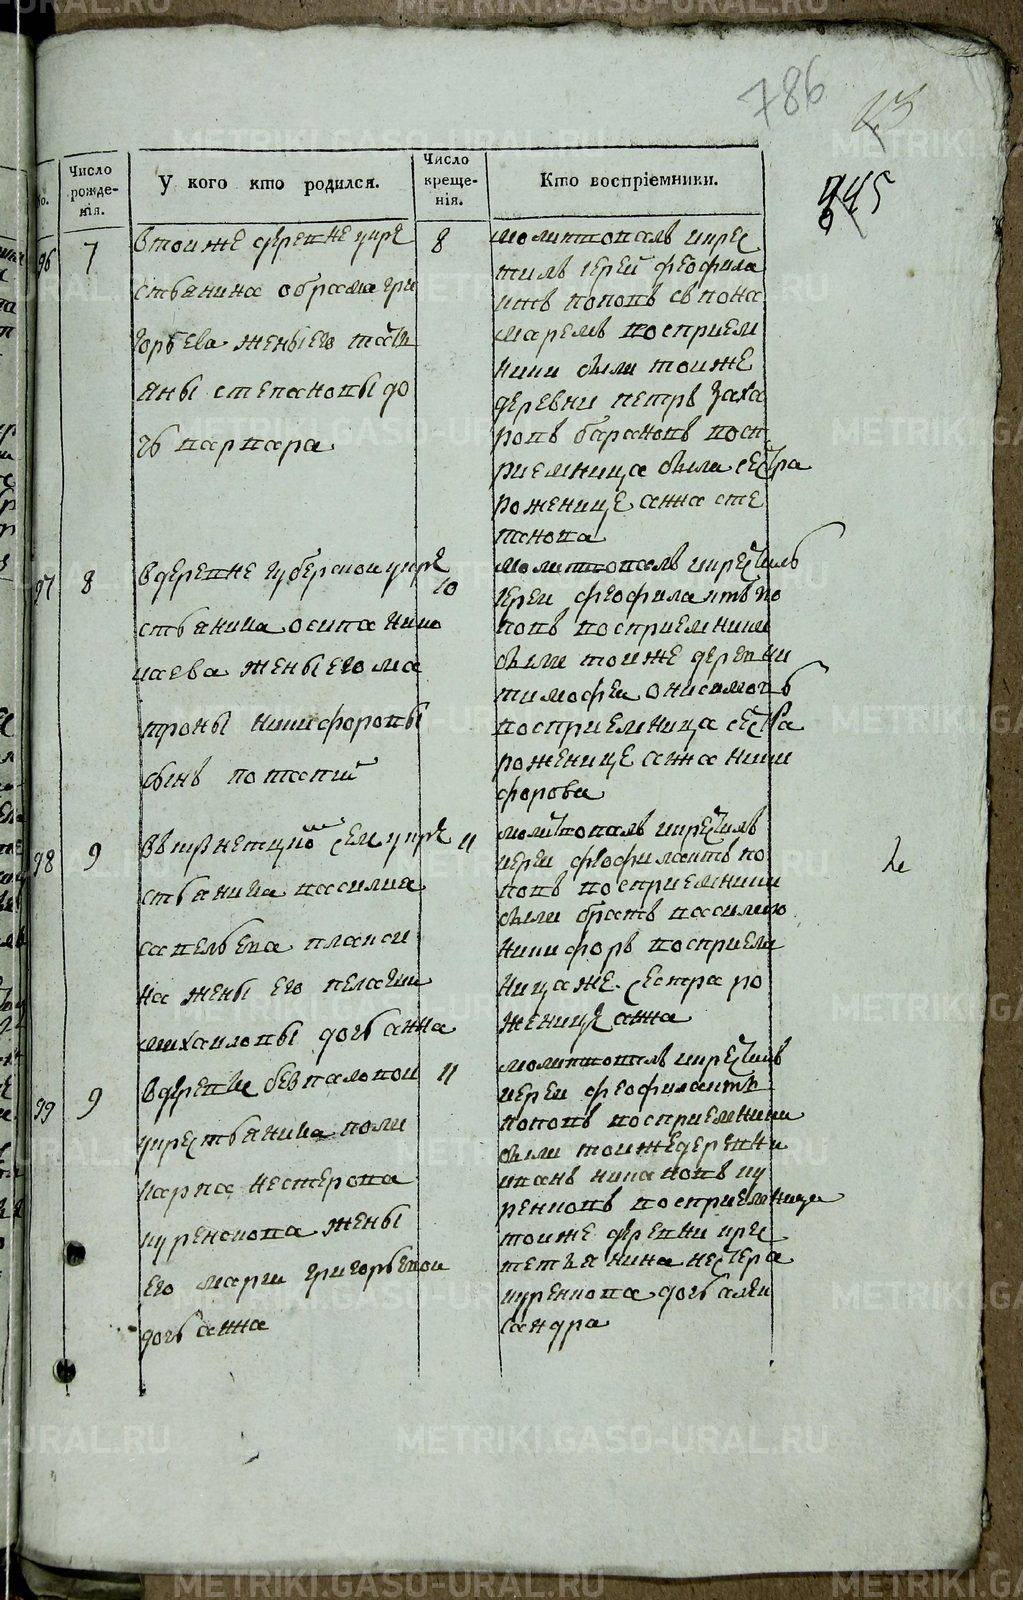 786
23
845
No.
Число рожде-нія.
У кого кто родился.
Число креще-нія.
Кто воспріемники.
96
7
втоиже деревне укре
стьянина обрама гри
горьева жены его тать
яны степановы до
чь варвара
8
молитвовалъ икрес
тилъ иерей феофила
ктъ поповъ съ пона
маремъ восприем
ники были тоиже
деревни петръ заха
ровъ барановъ восп
риемница была сестра
роженице анна сте
панова
97
8
вдеревне губерской укре
стьянина осипа нико
лаева жены его ма
троны никифоровы
сынъ потапий
10
молитвовалъ икрестилъ
иереи феофилактъ по
повъ восприемники
были тоиже деревни
тимофеи онисимовъ
восприемница сестра
роженице анна ники
форова
98
9
селе укре
стьянина василиа
савельева
на жены его пелагии
михаиловы дочь анна
11
молитвовалъ икрестилъ
иереи феофилактъ по
повъ восприемники
были братъ василию
никифоръ восприем
ницаже сестра ро
женице анна
99
9
вдеревне бевпаловои
укрестьянина поли
карпа нестерова
куренкова жены
его марги григорьевои
дочь анна
11
молитвовалъ икрестилъ
иереи феофилактъ
поповъ восприемники
были тоижедеревни
иванъ никановъ ку
ренковъ восприемница
тоиже деревни кре
стьянина нестера
куренкова дочь алек
сандра
METRIKI.GASO-URAL.RU